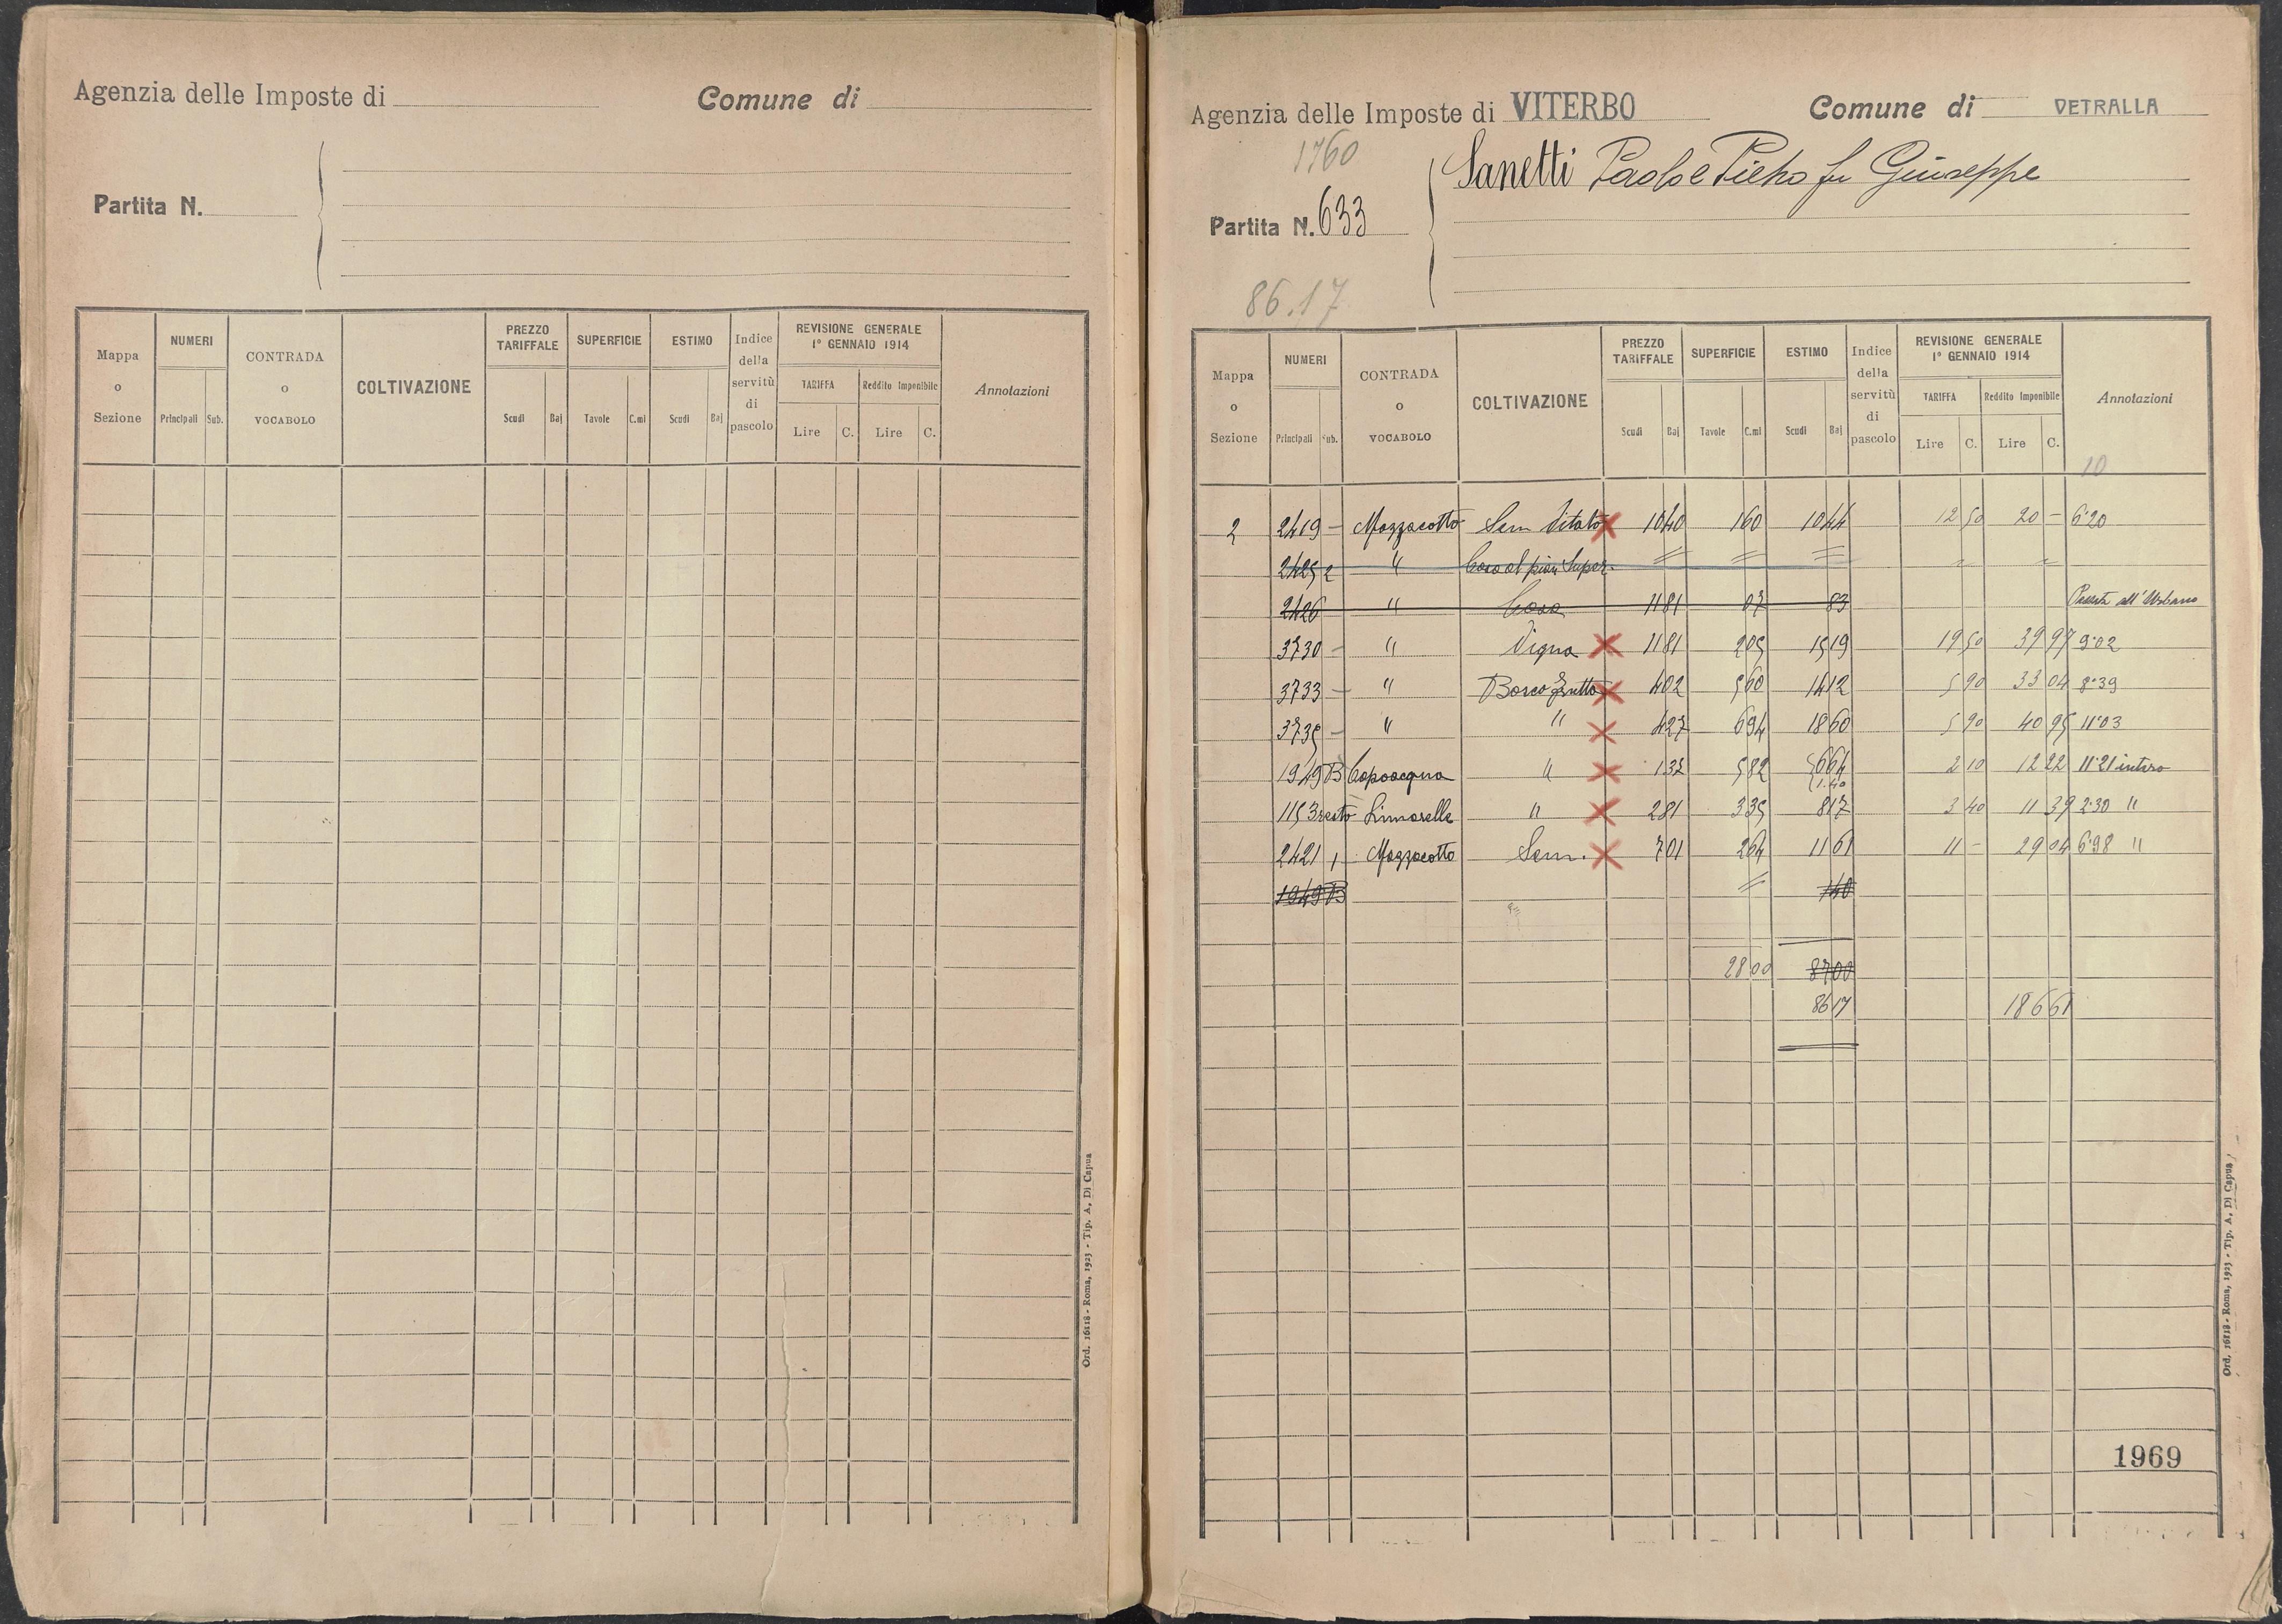 Agenzia delle Imposte di
Comune di
Partita N.
Mappa o Sezione
NUMERI
Principali Sub.
CONTRADA o VOCABOLO
COLTIVAZIONE
PREZZO TARIFFALE
Scudi Baj
SUPERFICIE
Tavole C.mi
ESTIMO
Scudi Baj
Indice della servitù di pascolo
REVISIONE GENERALE 1º GENNAIO 1914
TARIFFA Reddito Imponibile
Lire C. Lire C.
Annotazioni
Ord. 16118 - Roma, 1923 - Tip. A. Di Capua
Agenzia delle Imposte di VITERBO
Comune di VETRALLA
1760
Sanetti Paolo e Pietro fu Giuseppe
Partita N. 633
86.17
Mappa o Sezione
NUMERI
Principali Sub.
CONTRADA o VOCABOLO
COLTIVAZIONE
PREZZO TARIFFALE
Scudi Baj
SUPERFICIE
Tavole C.mi
ESTIMO
Scudi Baj
Indice della servitù di pascolo
REVISIONE GENERALE 1º GENNAIO 1914
TARIFFA Reddito Imponibile
Lire C. Lire C.
Annotazioni
10
2 2419 - Mazzacotto Sem Vitato 10 40 1 60 10 44 12 50 20 - 6.20
2425 2 " Casa al pian Super. = = = = =
2426 " Casa 11 81 07 83 Passata all'Urbano
3730 - " Vigna 11 81 2 05 15 19 19 50 39 97 9.02
3733 - " Bosco e frutto 4 02 5 60 14 12 5 90 33 04 8.39
3735 - " " 4 27 6 94 18 60 5 90 40 95 11.03
1949 B Capoacqua " 1 32 5 82 6 64 2 10 12 22 11.21 intero
1.40
1153 resto Limarelle " 2 81 3 35 8 17 3 40 11 39 2.30 "
2421 1 Mazzacotto Sem. 7 01 2 64 11 61 11 - 29 04 6.98 "
1949 B = 1 40
28 00 87 00
86 17 186 61
1969
Ord. 16118 - Roma, 1923 - Tip. A. Di Capua